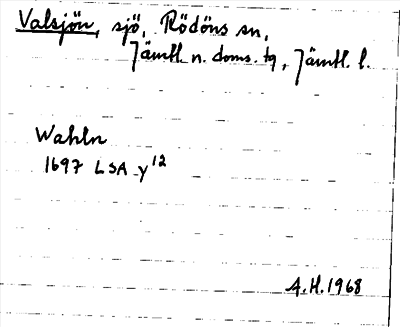 Valsjön, sjö, Rödöns sn,
Jämtl. n. doms. tg, Jämtl. l.
Wahln
1697 LSA y¹²
A.H. 1968